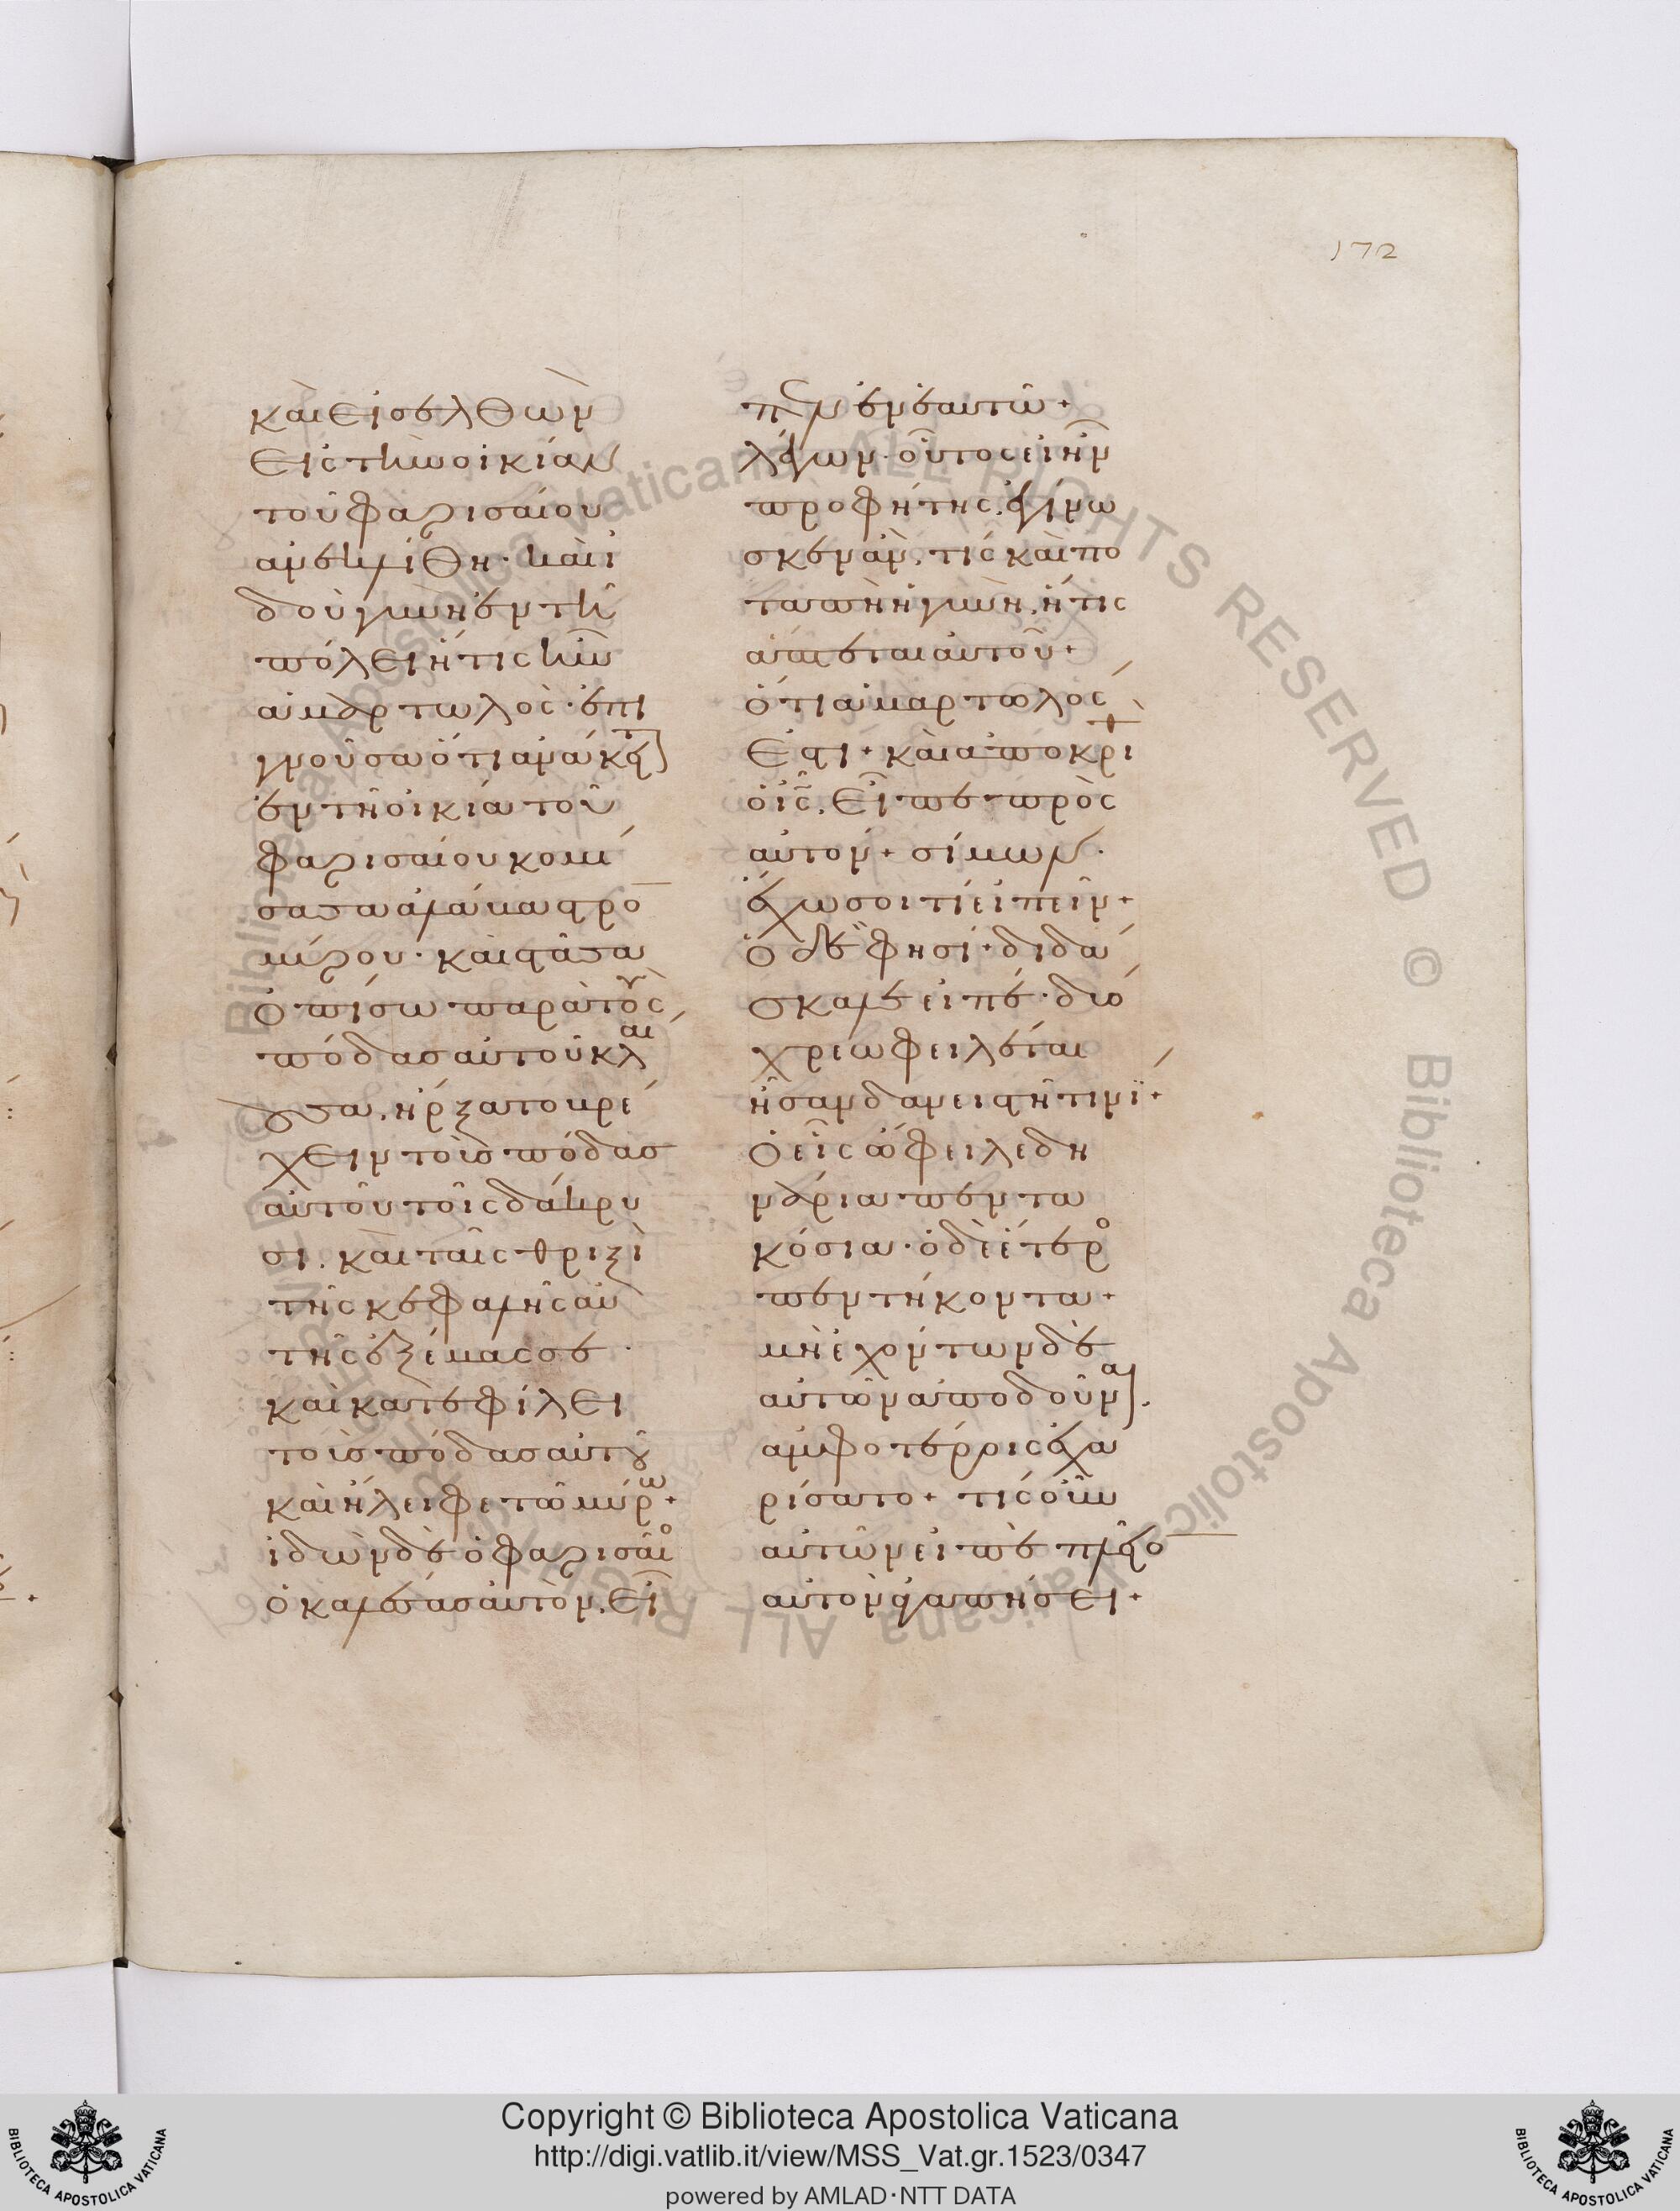 172
καὶ εἰσελθὼν
εἰς τὴν οἰκίαν
τοῦ φαρισαίου
ἀνεκλίθη· καὶ ἰ
δοὺ γυνὴ ἐν τῆ
πόλει ἥτις ἦν
ἁμαρτωλὸς· ἐπι
γνοῦσα ὅτι ἀνάκειται
ἐν τῆ οἰκία τοῦ
φαρισαίου κομί
σασα ἀλάβαστρο
μύρου· καὶ στᾶσα
ὀπίσω παρὰ τοὺς
πόδας αὐτοῦ κλαί
ουσα, ἤρξατο βρέ
χειν τοὺς πόδας
αὐτοῦ τοῖς δάκρυ
σι. καὶ ταῖς θριξὶ
τῆς κεφαλῆς αὑ
τῆς ἐξέμασσε·
καὶ κατεφίλει
τοὺς πόδας αὐτοῦ
καὶ ἤλειφε τῶ μύρω+
ἰδὼν δὲ ὁ φαρισαῖος
ὁ καλέσας αὐτὸν, εἶ
πεν ἐν ἑαυτῶ+
λέγων· οὗτος εἰ ἦν
προφήτης, ἐγίνω
σκεν ἂν, τίς καὶ πο
ταπὴ ἡ γυνὴ, ἥτις
ἅπτεται αὐτοῦ+
ὅτι ἁμαρτωλός
ἐστι+ καὶ ἀποκρι
ὁ ις, εἶπε πρὸς
αὐτόν+ σίμων·
ἔχω σοι τί εἰπεῖν+
ὁ δέ φησι+ διδά
σκαλε εἰπέ· δύο
χρεωφειλέται
ἦσαν δανειστῆ τινί+
ὁ εἷς ὤφειλε δη
νάρια πεντα
κόσια· ὁ δὲ ἕτερος
πεντήκοντα+
μὴ ἐχόντων δὲ
αὐτῶν ἀποδοῦναι.
ἀμφοτέροις ἐχα
ρίσατο+ τίς οὖν
αὐτῶν εἰπὲ πλεῖο
αὐτὸν ἀγαπήσει+
© Biblioteca Apostolica Vaticana ALL RIGHTS RESERVED © Biblioteca Apostolica Vaticana ALL RIGHTS RESERVED
Copyright © Biblioteca Apostolica Vaticana
http://digi.vatlib.it/view/MSS_Vat.gr.1523/0347
powered by AMLAD·NTT DATA
BIBLIOTECA APOSTOLICA VATICANA
BIBLIOTECA APOSTOLICA VATICANA